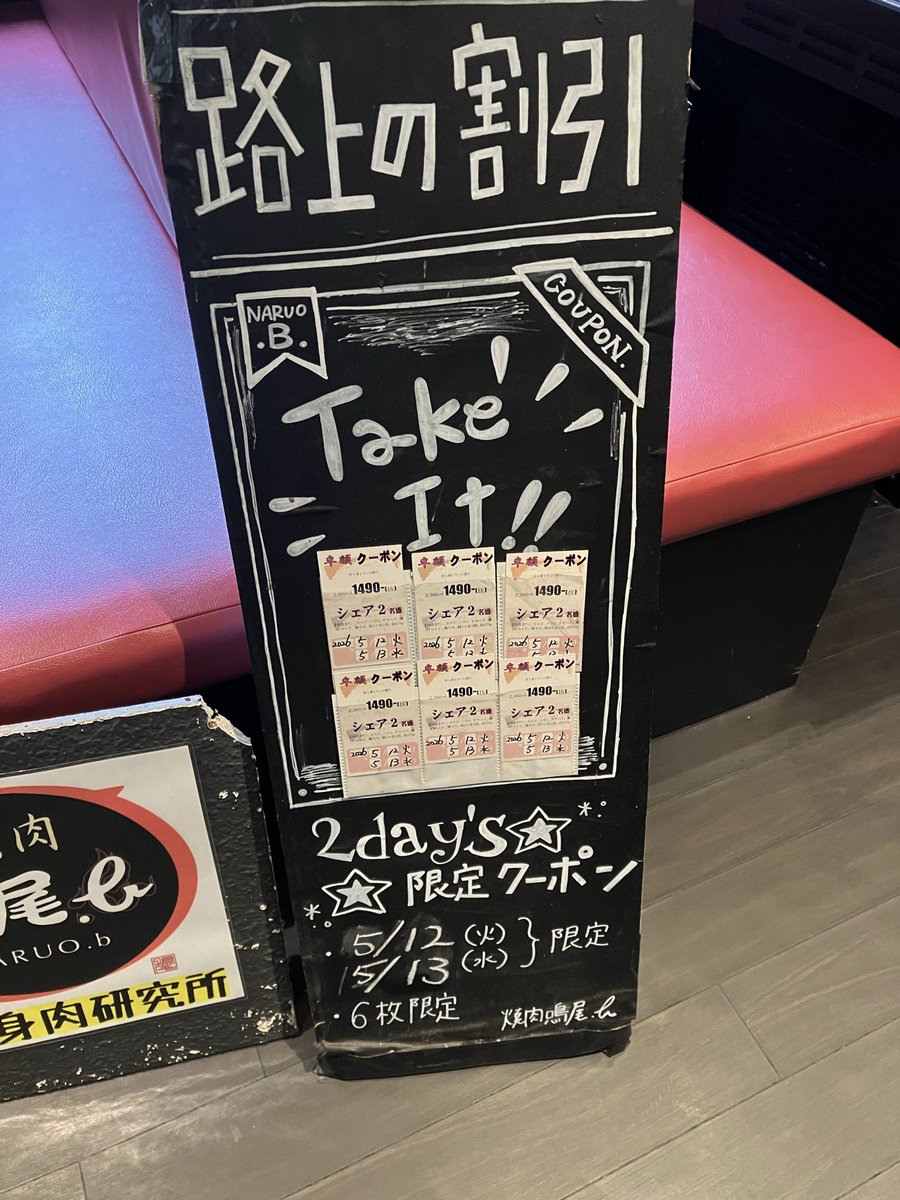 路上の割引
NARUO
.B.
COUPON.
Take
It!!
卓額 クーポン
1490-(税)
シェア2名邊
2026 5 12 火
5 13 水
卓額 クーポン
1490-(税)
シェア2名邊
2026 5 12 火
卓額 クーポン
1490-(税)
シェア2名邊
2026 5 12 火
卓額 クーポン
1490-(税)
シェア2名邊
2026 5 12 火
5 13 水
卓額 クーポン
1490-(税)
シェア2名邊
2026 5 12 火
5 13 水
卓額 クーポン
1490-(税)
シェア2名邊
2026 5 12 火
5 13 水
2day's
限定クーポン
・5/12(火)
5/13(水)
}限定
・6枚限定
焼肉鳴尾.b
肉
尾.b
ARUO.b
身肉研究所